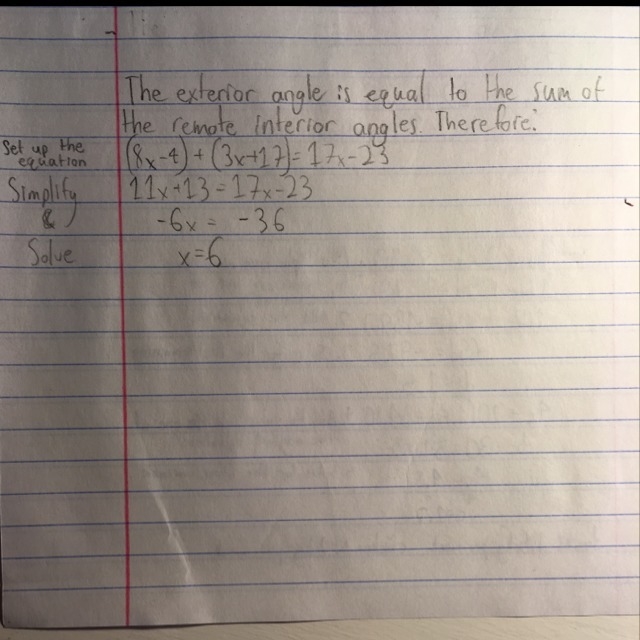 The exterior angle is equal to the sum of
the remote interior angles. Therefore:
Set up the
equation
(8x-4)+(3x+17)=17x-23
Simplify
11x+13=17x-23
&
-6x= -36
Solve
x=6